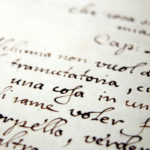 che cosa s
Cap:
lchimia non vuol d
tramutatoria, c
una cosa in un
di rame voler f
orpello, verder
altro